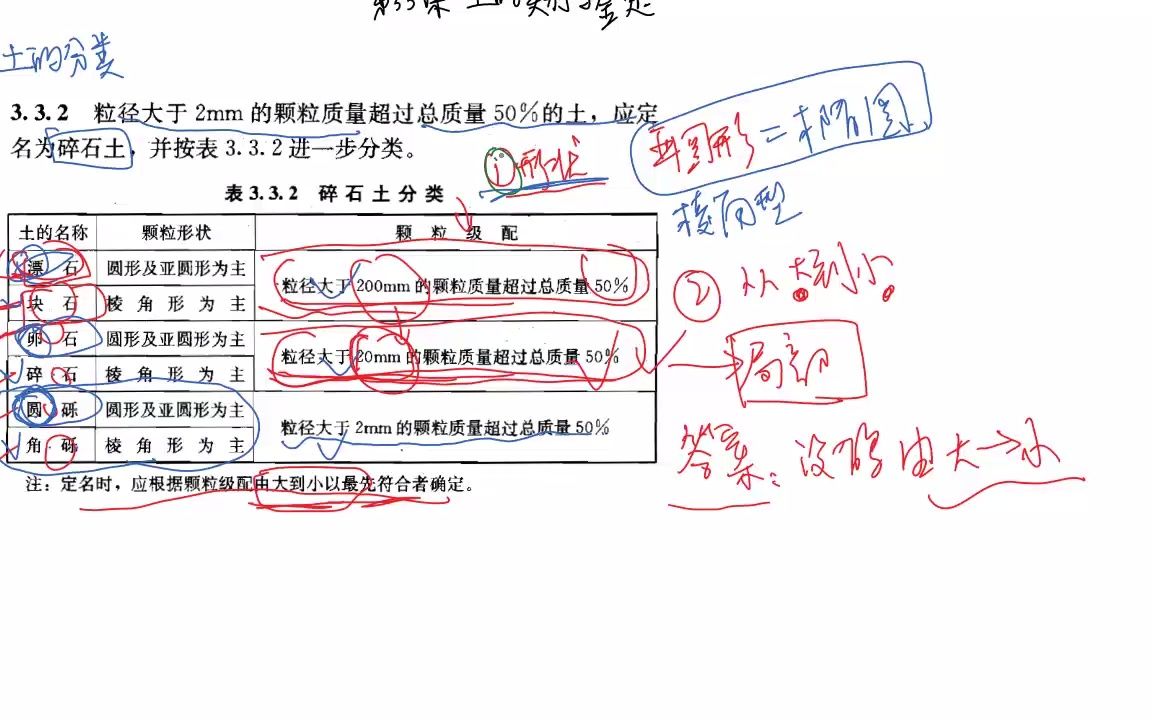 土的分类
3.3.2 粒径大于2mm的颗粒质量超过总质量50%的土，应定
名为碎石土，并按表3.3.2进一步分类。
①形状
亚圆形=椭圆
棱角型
表3.3.2 碎石土分类
土的名称 颗粒形状 颗粒级配
漂石 圆形及亚圆形为主 粒径大于200mm的颗粒质量超过总质量50%
块石 棱角形为主
卵石 圆形及亚圆形为主 粒径大于20mm的颗粒质量超过总质量50%
碎石 棱角形为主
圆砾 圆形及亚圆形为主 粒径大于2mm的颗粒质量超过总质量50%
角砾 棱角形为主
注：定名时，应根据颗粒级配由大到小以最先符合者确定。
② 从大到小
局部
答案：没有由大→小